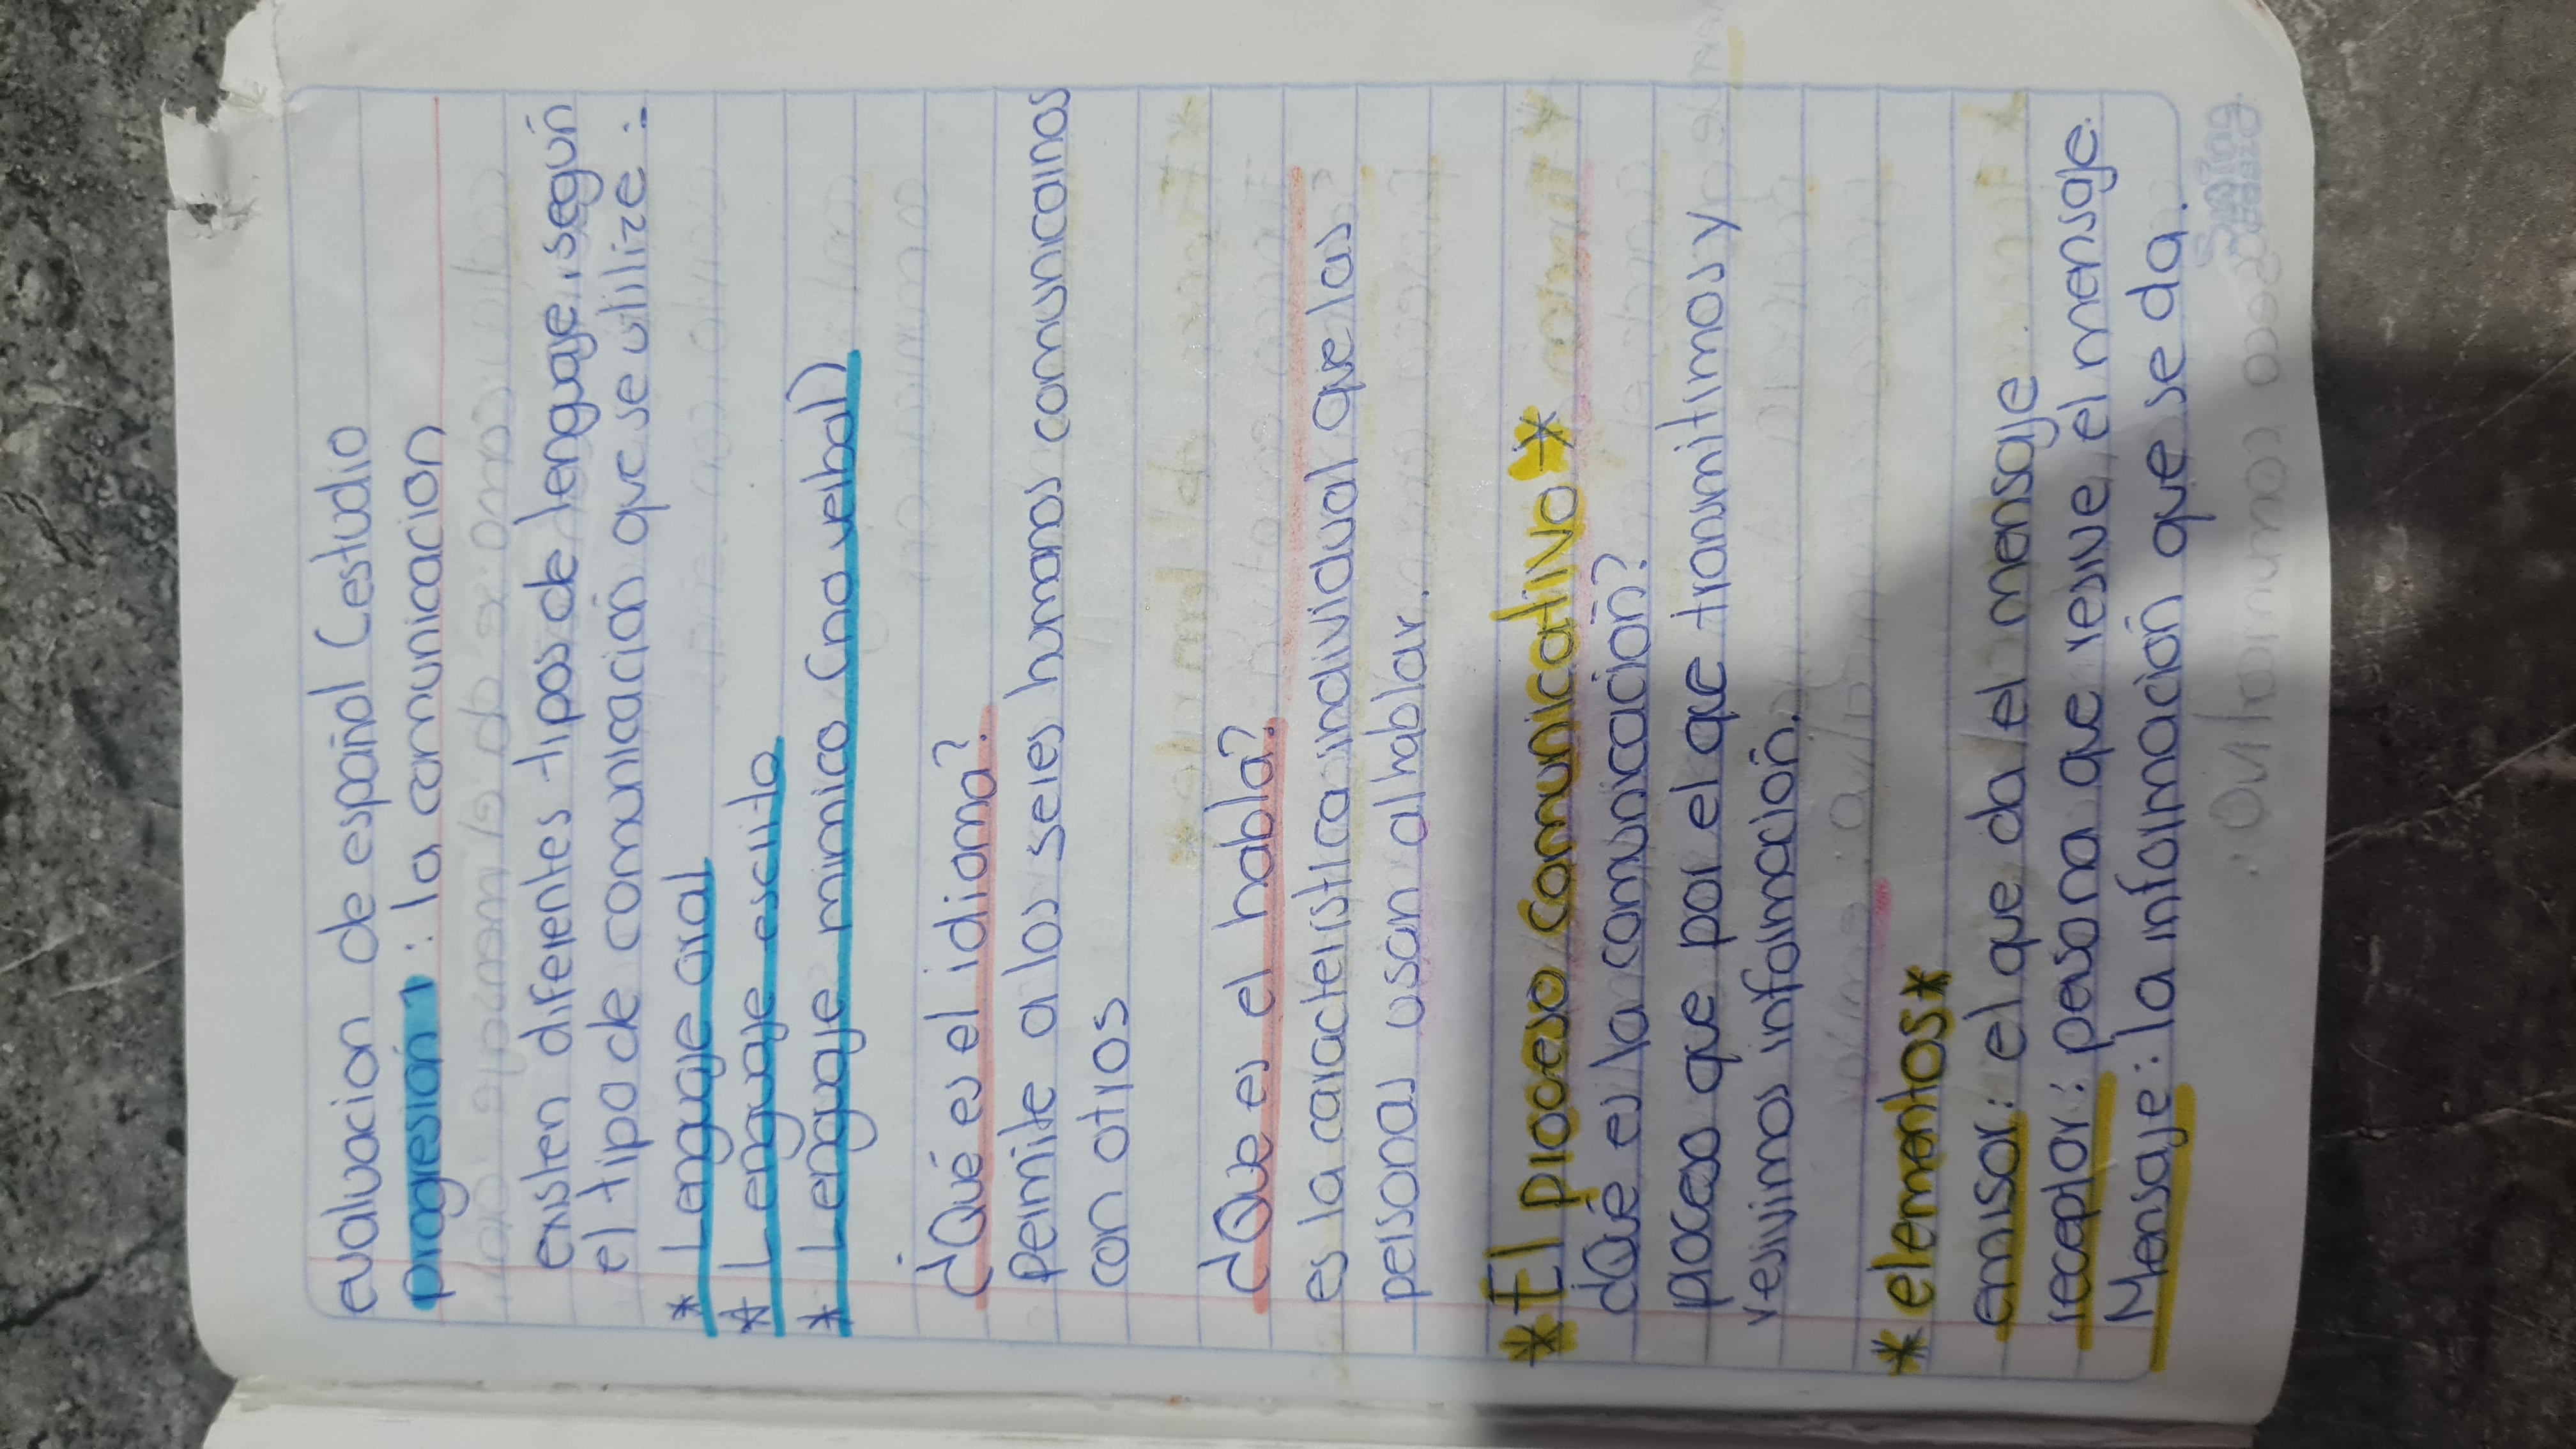 evaluacion de español (estudio
Progresión 1 : la comunicacion
existen diferentes tipos de lenguaje, según
el tipo de comunicación que se utilize :
* Lenguaje oral
* Lenguaje escrito
* Lenguaje mimico (no verbal)
¿Qué es el idioma?
permite a los seres humanos comunicarnos
con otros
¿Que es el habla?
es la característica individual que las
personas usan al hablar.
*El proceso comunicativo*
¿Qué es la comunicación?
proceso que por el que transmitimos y
resivimos información.
*elementos*
emisor: el que da el mensaje
receptor: persona que resive el mensaje.
Mensaje: la información que se da.